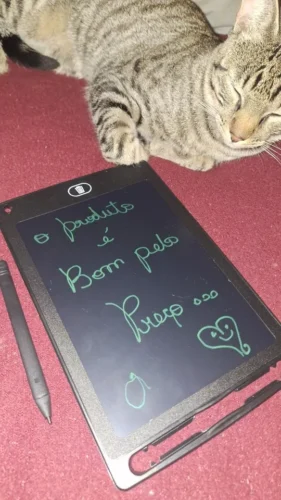 o produto
é
Bom pelo
Preço ...